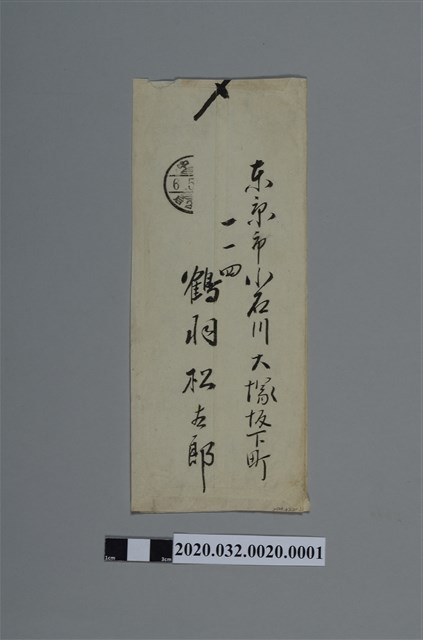 東京市小石川大塚坂下町
一一四
鶴羽松太郎
6.5
2020.032.0020.0001
1cm
3cm